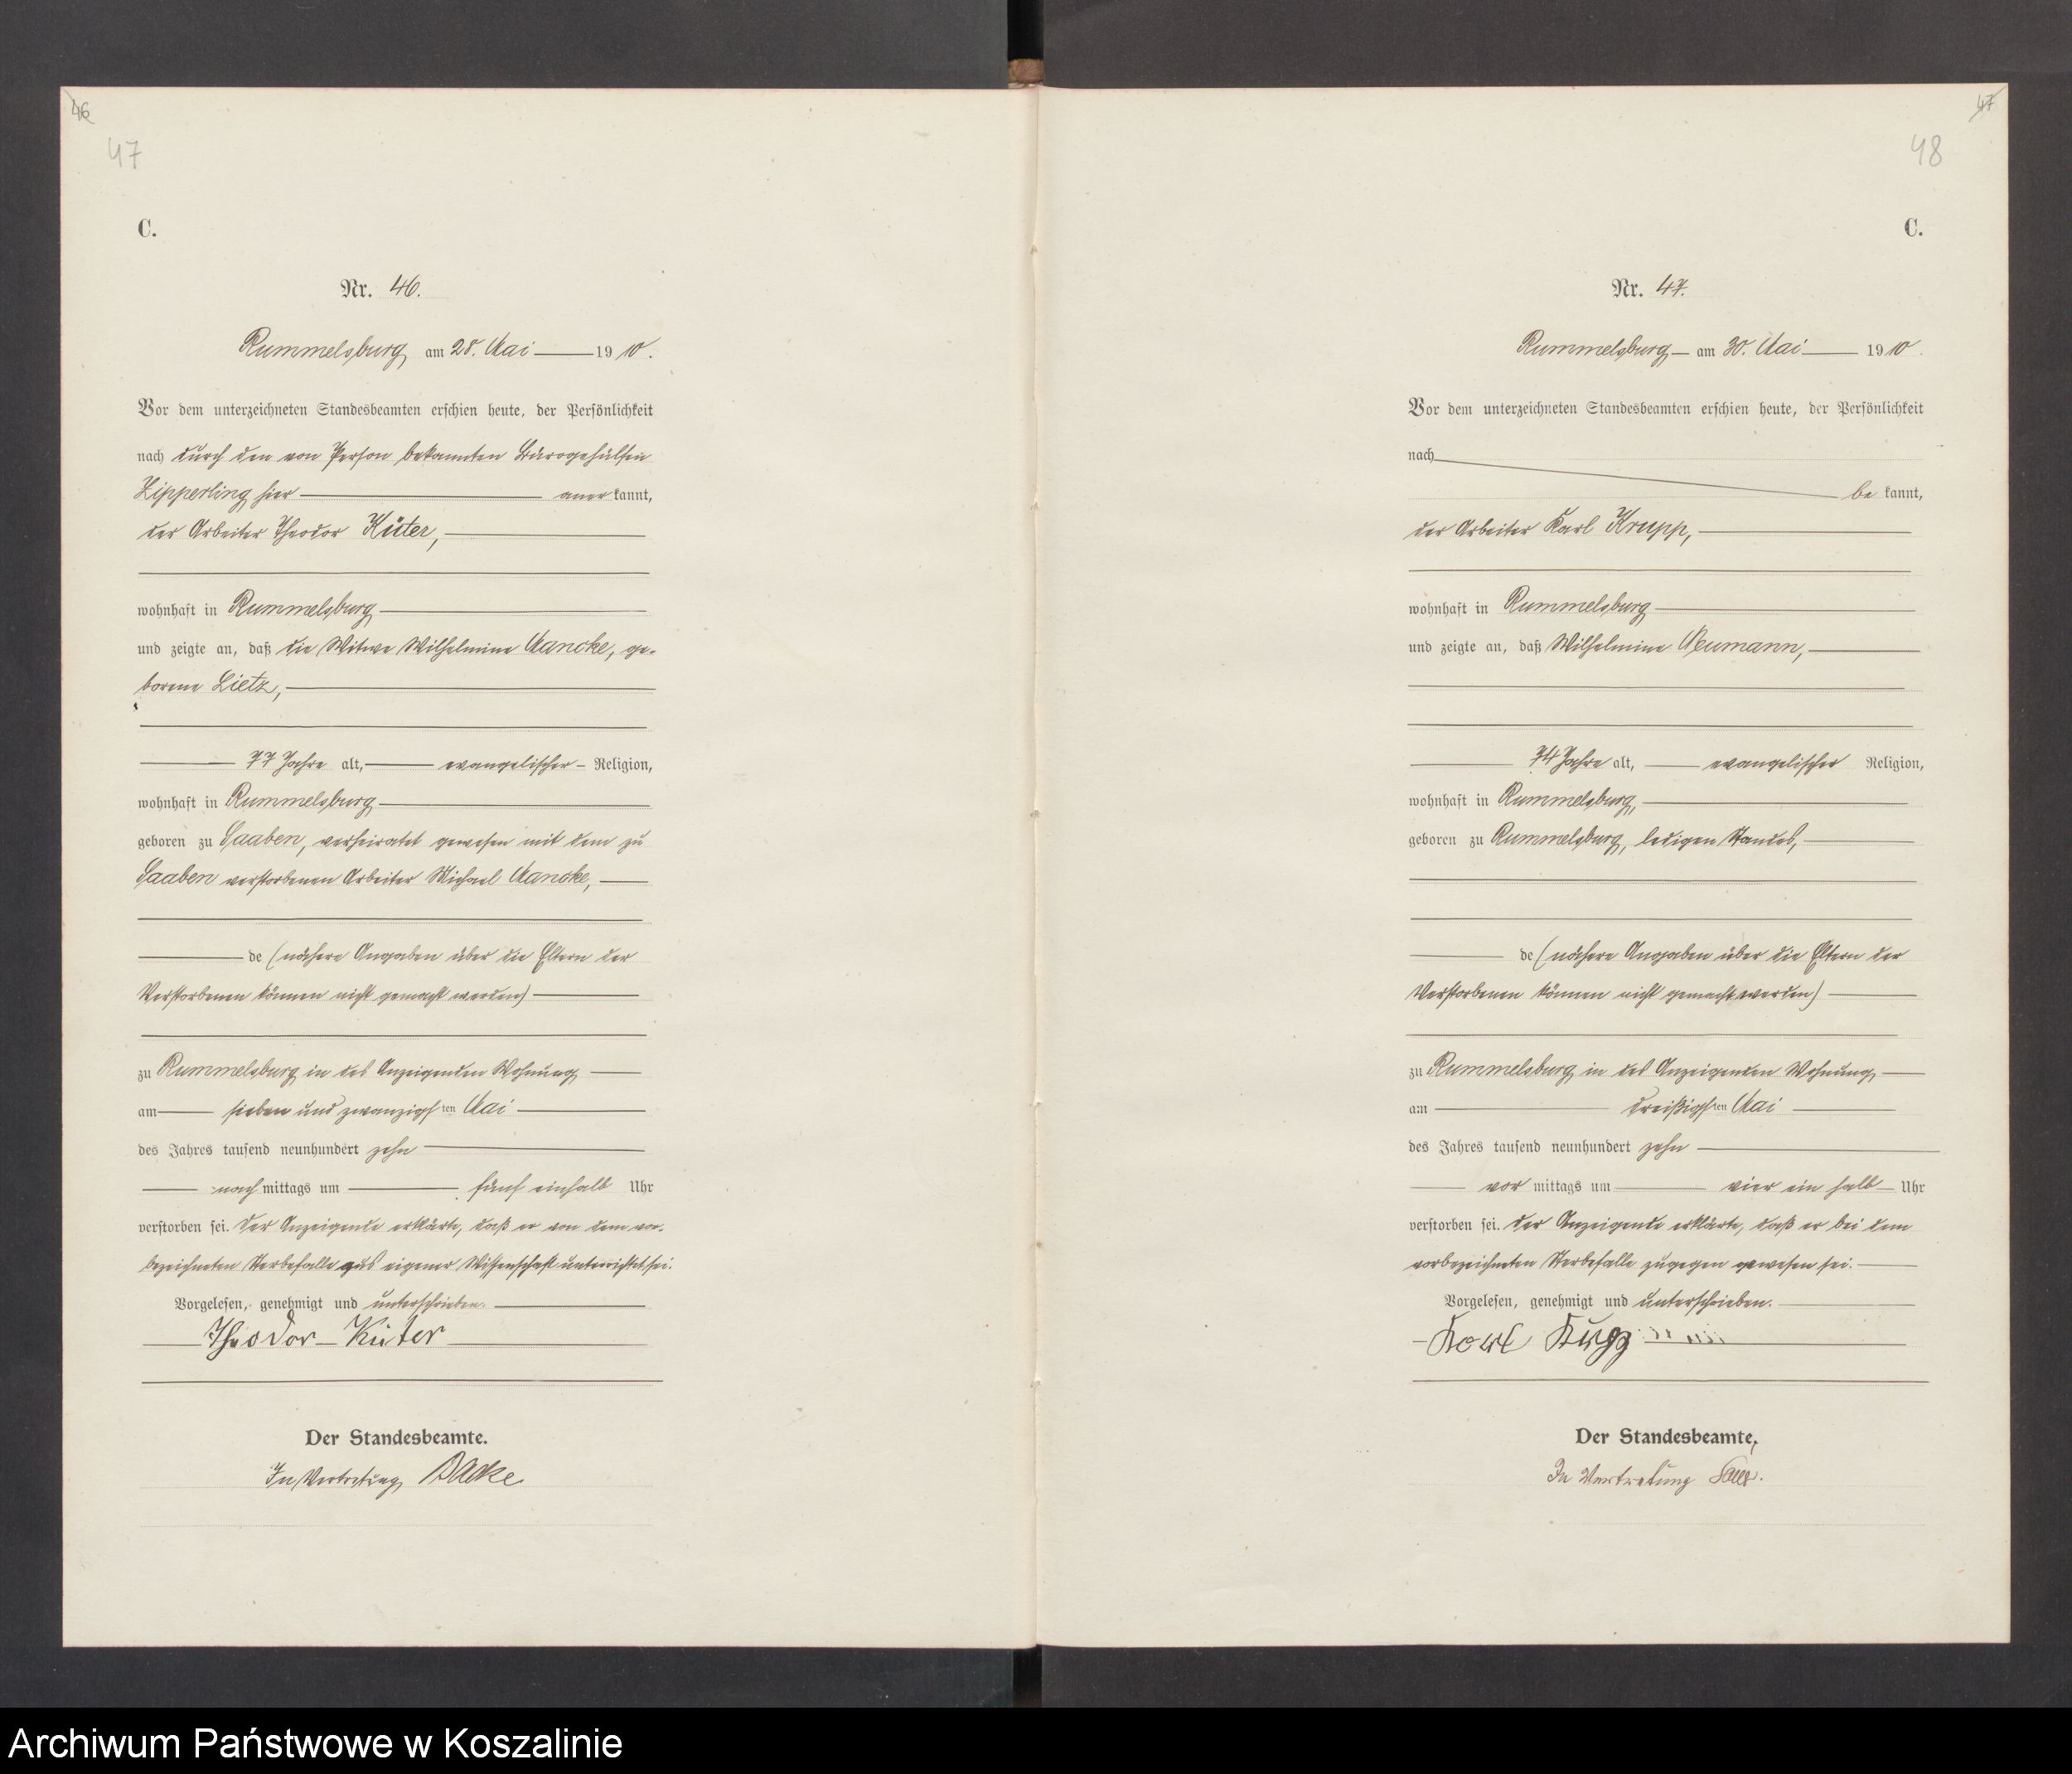 46
47
C.
Nr. 46.
Rummelsburg am 28. Mai 1910.
Vor dem unterzeichneten Standesbeamten erschien heute, der Persönlichkeit
nach durch den von Person bekannten Bürogehülfen
Zipperling hier anerkannt,
der Arbeiter Theodor Küter,
wohnhaft in Rummelsburg
und zeigte an, daß die Witwe Wilhelmine Mancke, ge-
borene Lietz,
77 Jahre alt, evangelischer Religion,
wohnhaft in Rummelsburg
geboren zu Saaben, verheiratet gewesen mit dem zu
Saaben verstorbenen Arbeiter Michael Mancke,
de (nähere Angaben über die Eltern der
Verstorbenen können nicht gemacht werden)
zu Rummelsburg in des Anzeigenden Wohnung
am sieben und zwanzigsten Mai
des Jahres tausend neunhundert zehn
nach mittags um fünf einhalb Uhr
verstorben sei. Der Anzeigende erklärte, daß er von dem vor-
bezeichneten Sterbefalle aus eigener Wissenschaft unterrichtet sei.
Vorgelesen, genehmigt und unterschrieben.
Theodor Küter
Der Standesbeamte.
In Vertretung
47
48
C.
Nr. 47.
Rummelsburg am 30. Mai 1910.
Vor dem unterzeichneten Standesbeamten erschien heute, der Persönlichkeit
nach
be kannt,
der Arbeiter Karl Krupp,
wohnhaft in Rummelsburg
und zeigte an, daß Wilhelmine Neumann,
74 Jahre alt, evangelischer Religion,
wohnhaft in Rummelsburg,
geboren zu Rummelsburg, ledigen Standes,
de (nähere Angaben über die Eltern der
Verstorbenen können nicht gemacht werden)
zu Rummelsburg in des Anzeigenden Wohnung
am dreißigsten Mai
des Jahres tausend neunhundert zehn
vor mittags um vier ein halb Uhr
verstorben sei. Der Anzeigende erklärte, daß er bei dem
vorbezeichneten Sterbefalle zugegen gewesen sei.
Vorgelesen, genehmigt und unterschrieben.
Karl
Der Standesbeamte,
In Vertretung
Archiwum Państwowe w Koszalinie